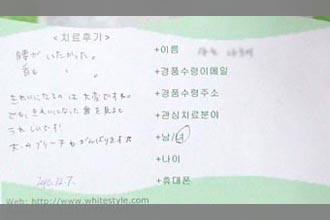 <치료후기>
腰がいたかった。
首も 〃 。
きれいになるのは大変ですね。
でも、きれいになった歯を見ると
うれしいです!
次のブリーチもがんばります
+이름
+경품수령이메일
+경품수령주소
+관심치료분야
+남/녀
+나이
+휴대폰
Web: http://www.whitestyle.com